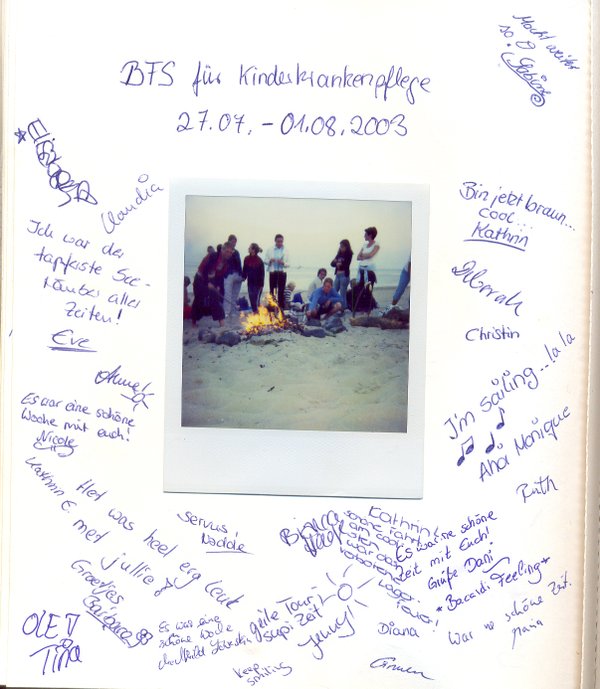 Macht weiter
so!
Sabine
BFS für Kinderkrankenpflege
27.07. - 01.08.2003
Elisabeth
Claudia
Ich war der
tapferste See-
räuber aller
Zeiten!
Eve
Bin jetzt braun...
cool...
Kathrin
Deborah
Christin
I'm sailing...la la
Ahoi Monique
Ruth
Es war eine schöne
Woche mit euch!
Nicole
Kathrin E.
Het was heel erg leuk
met jullie
Groetjes
servus
Nadde
Bianca
Kathrin
schöne Fahrt
am coolsten
war das
Lager-
feuer!
Es war ne schöne
Zeit mit Euch!
Grüße Dani
*Bacardi Feeling*
War ne schöne Zeit.
Maria
Diana
Carmen
geile Tour
supi Zeit
Jenny!
keep
smiling
Es war eine
schöne Woche
OLE
Tina